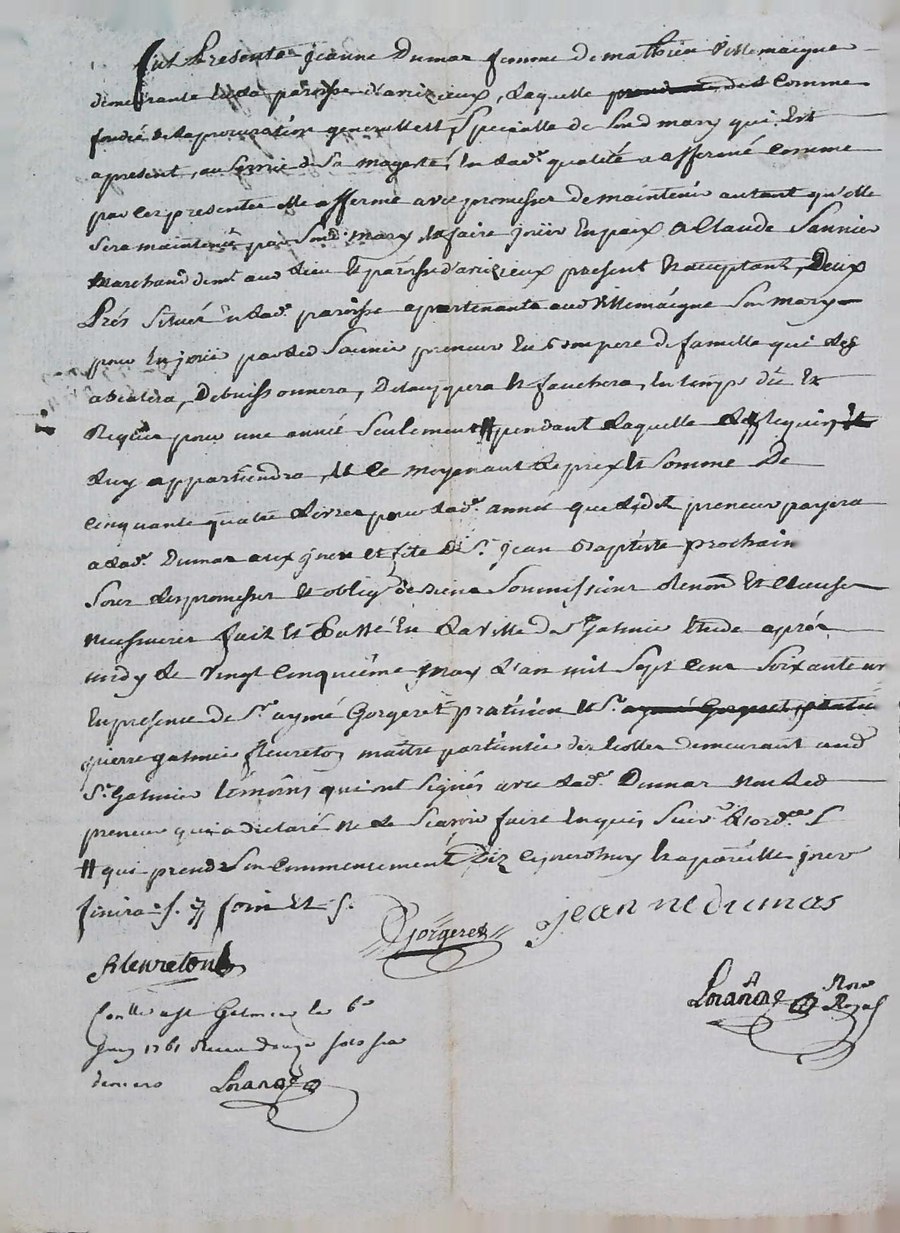 fut Presente jeanne Dumas femme de mathieu Villemaigne
demeurante la paroisse d'aveizieux, Laquelle Comme
fondée de la procuration generalle et Specialle de Sond mary qui Est
apresent au Servic de Sa magesté, En lad.e qualité a affermé Comme
par Ces presentes elle afferme avec promesses de maintenir autant qu'elle
Sera maintenüe par Sond. mary et faire jöuir En paix a Claude Saunier
Marchand dem.t aud Lieu et paroisse d'aveizieux present et acceptant, Deux
Prés Situés En lad.e paroisse appartenants aud Villemaigne Son Mary
pour En joüir par led Saunier preneur En bon pere de famille qui Les
Debuissonnera, Detauppera et fauchera, En temps dû Et
Requis pour une année Seulement # pendant Laquelle
Luy appartiendra, Et Ce moyenant Le prix et Somme De
Cinquante quatre Livres pour lad.e année que Ledit preneur payera
a lad.e Dumas aux jour et fete de S.t jean Baptiste prochain
Sous Les promesses et oblig. de biens Soummissions Renon.s Et Clauses
Necessaires fait Et Passé En La Ville de S.t Galmier Etude après
midy Le Vingt Cinquiéme May L'an mil Sept Cent Soixante un
En presence de S.r aymé Gorgeret praticien et S.r aymé Gorgeret
pierre galmier fleureton maître des Ecolles demeurant aud
S.t Galmier temoins qui ont Signés avec lad.e Dumas Non led
preneur qui a declaré Ne le Scavoir faire Enquis Suiv.t L'ord.ce
# qui prend Son Commencement Dez Cejourd'huy Et a pareille jour
finira foin Et
Gorgeret jeanne dumas
fleureton
Lorange Nore Royal
Conllé a St Galmier le 6e
juin 1761 Receu douze sols
deniers Lorange